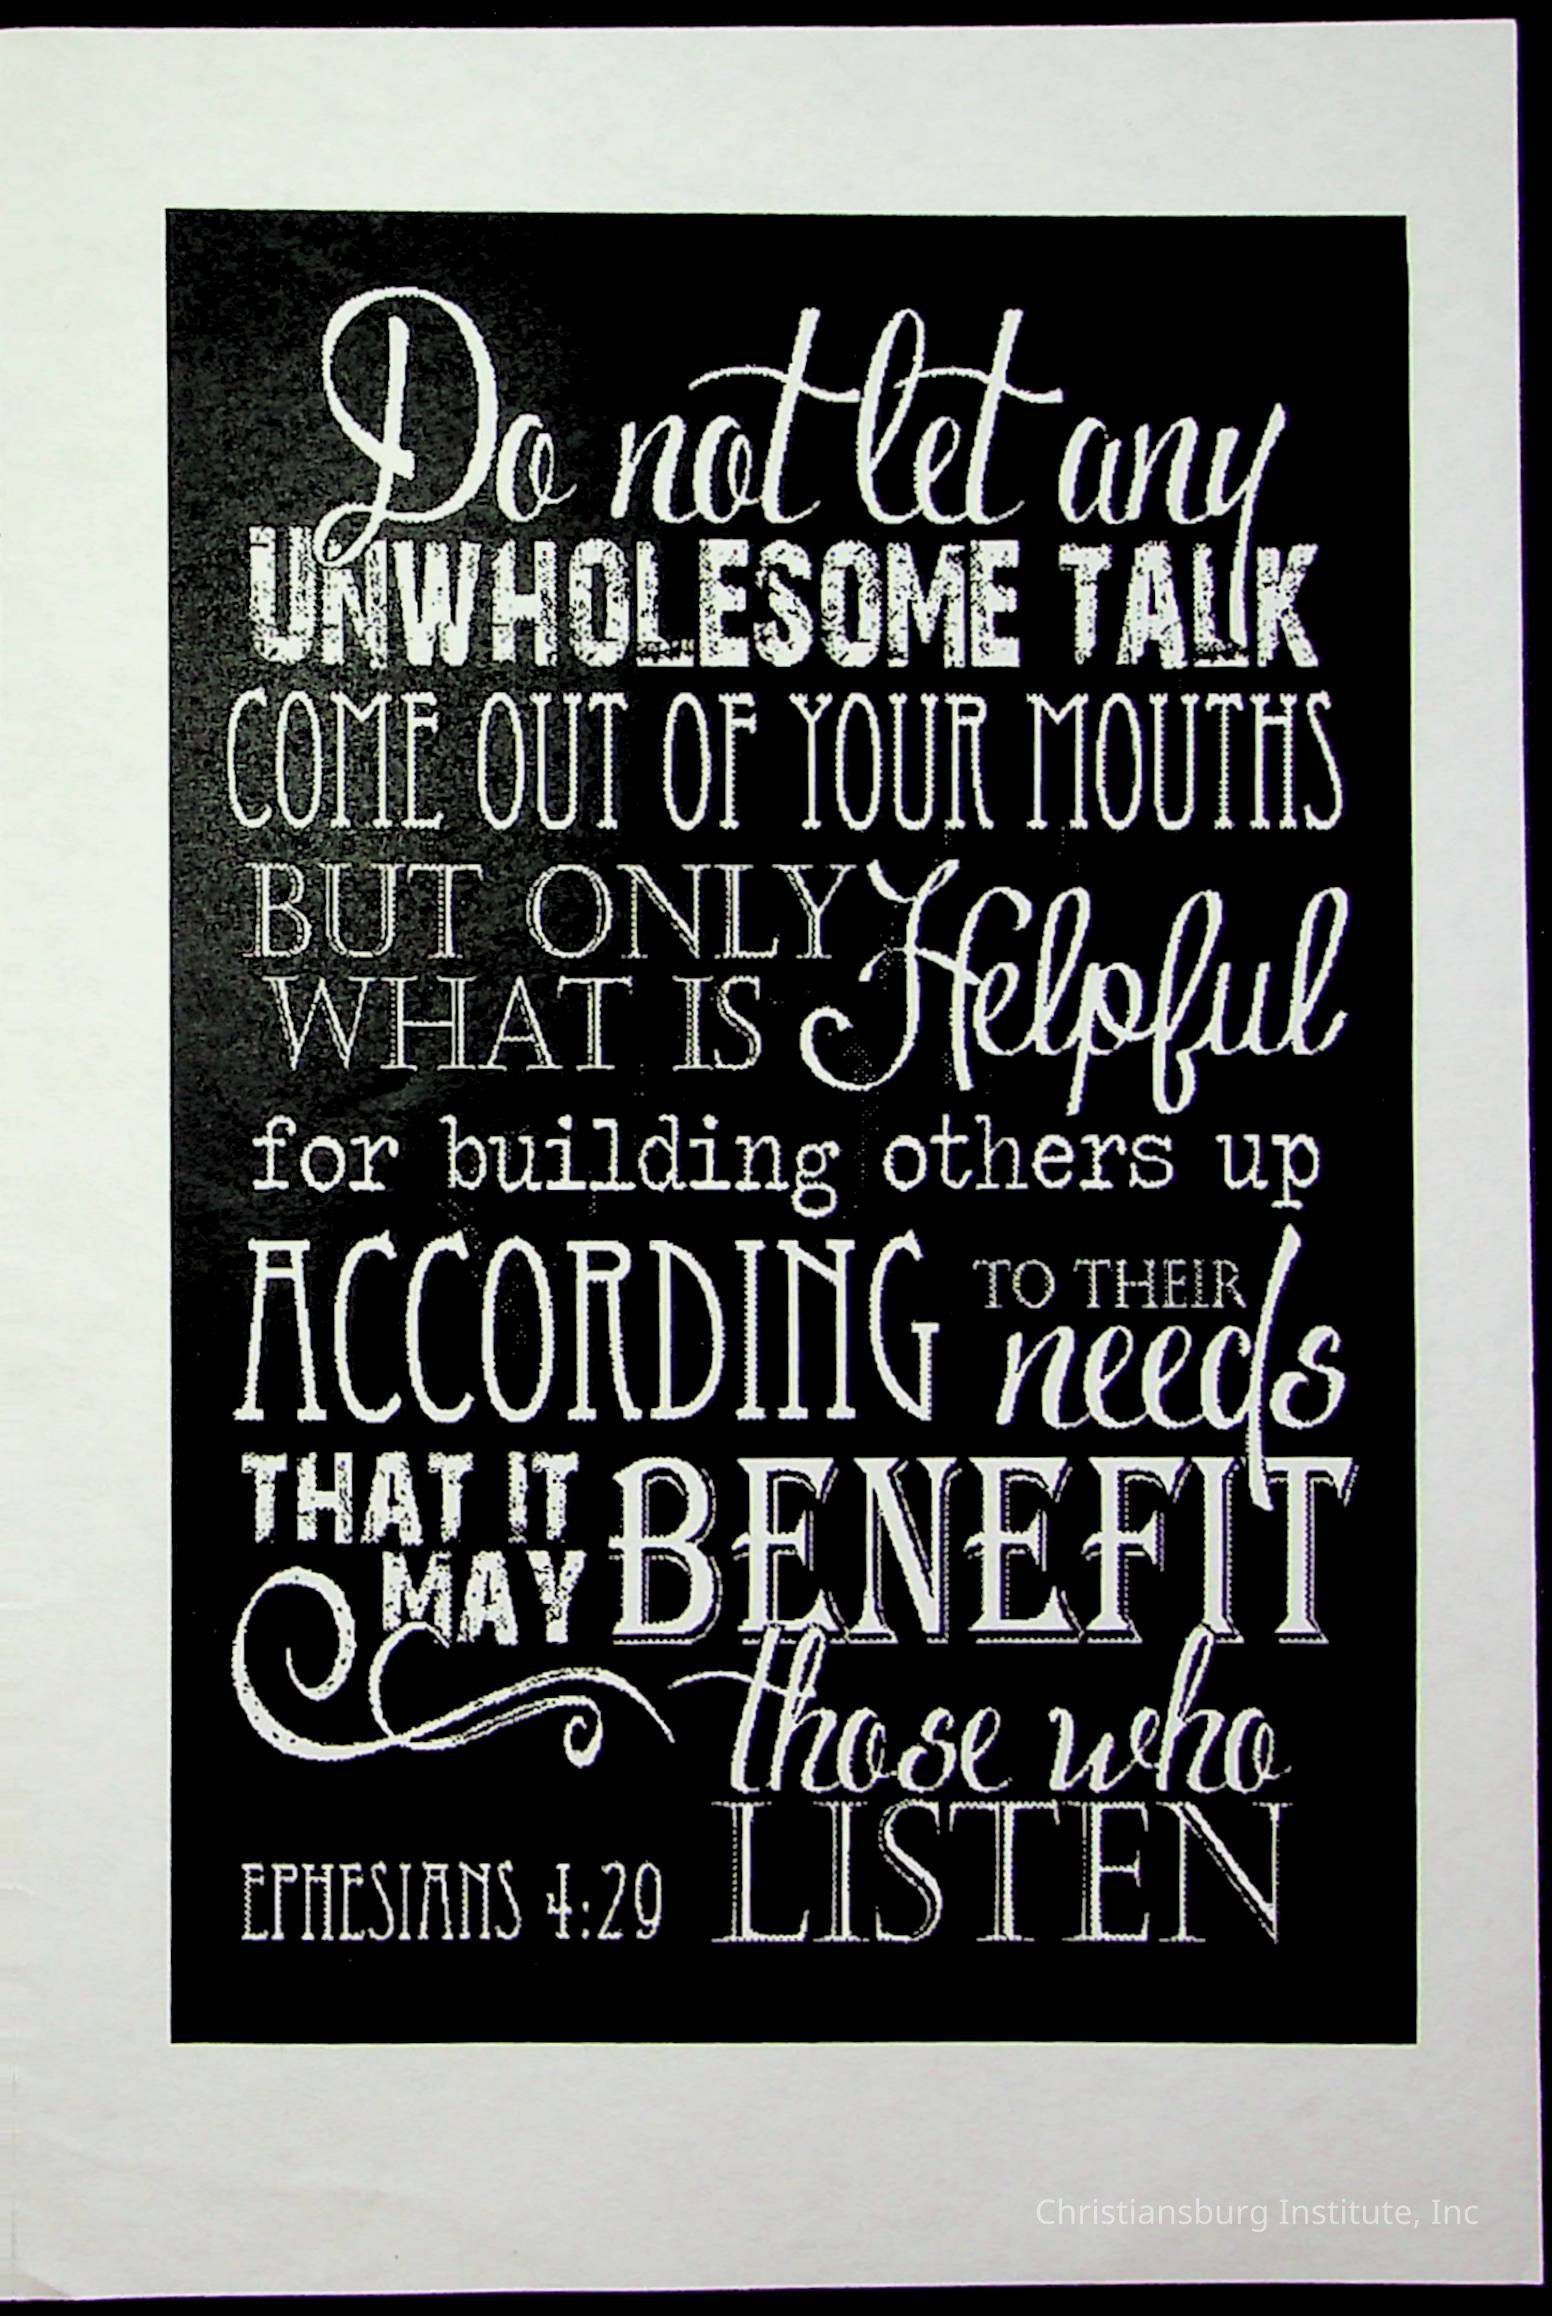 Do not let any
UNWHOLESOME TALK
COME OUT OF YOUR MOUTHS
BUT ONLY
WHAT IS Helpful
for building others up
ACCORDING TO THEIR
needs
THAT IT
MAY BENEFIT
those who
LISTEN
EPHESIANS 4:29
Christiansburg Institute, Inc